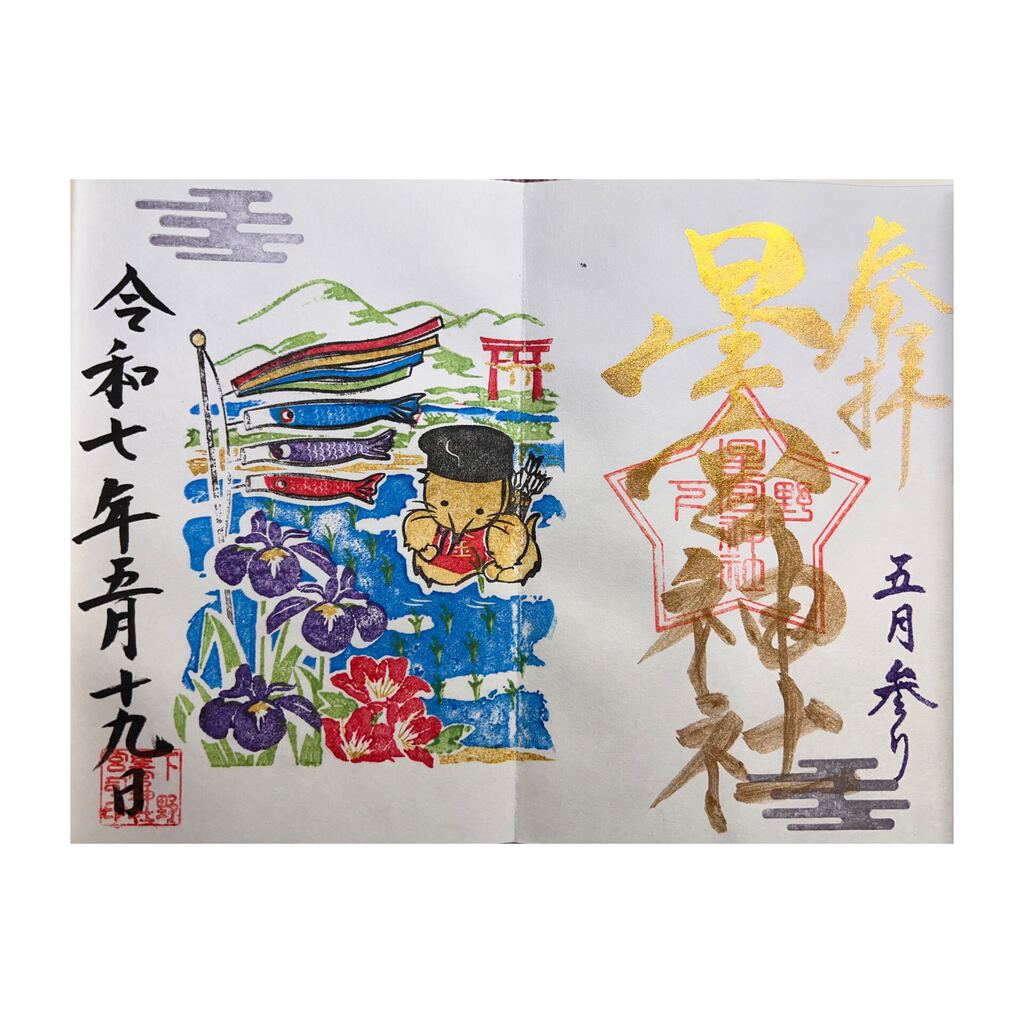 奉拝
五月参り
星宮神社
下野
星宮神社
令和七年五月十九日
下野
星宮神社
宮司之印